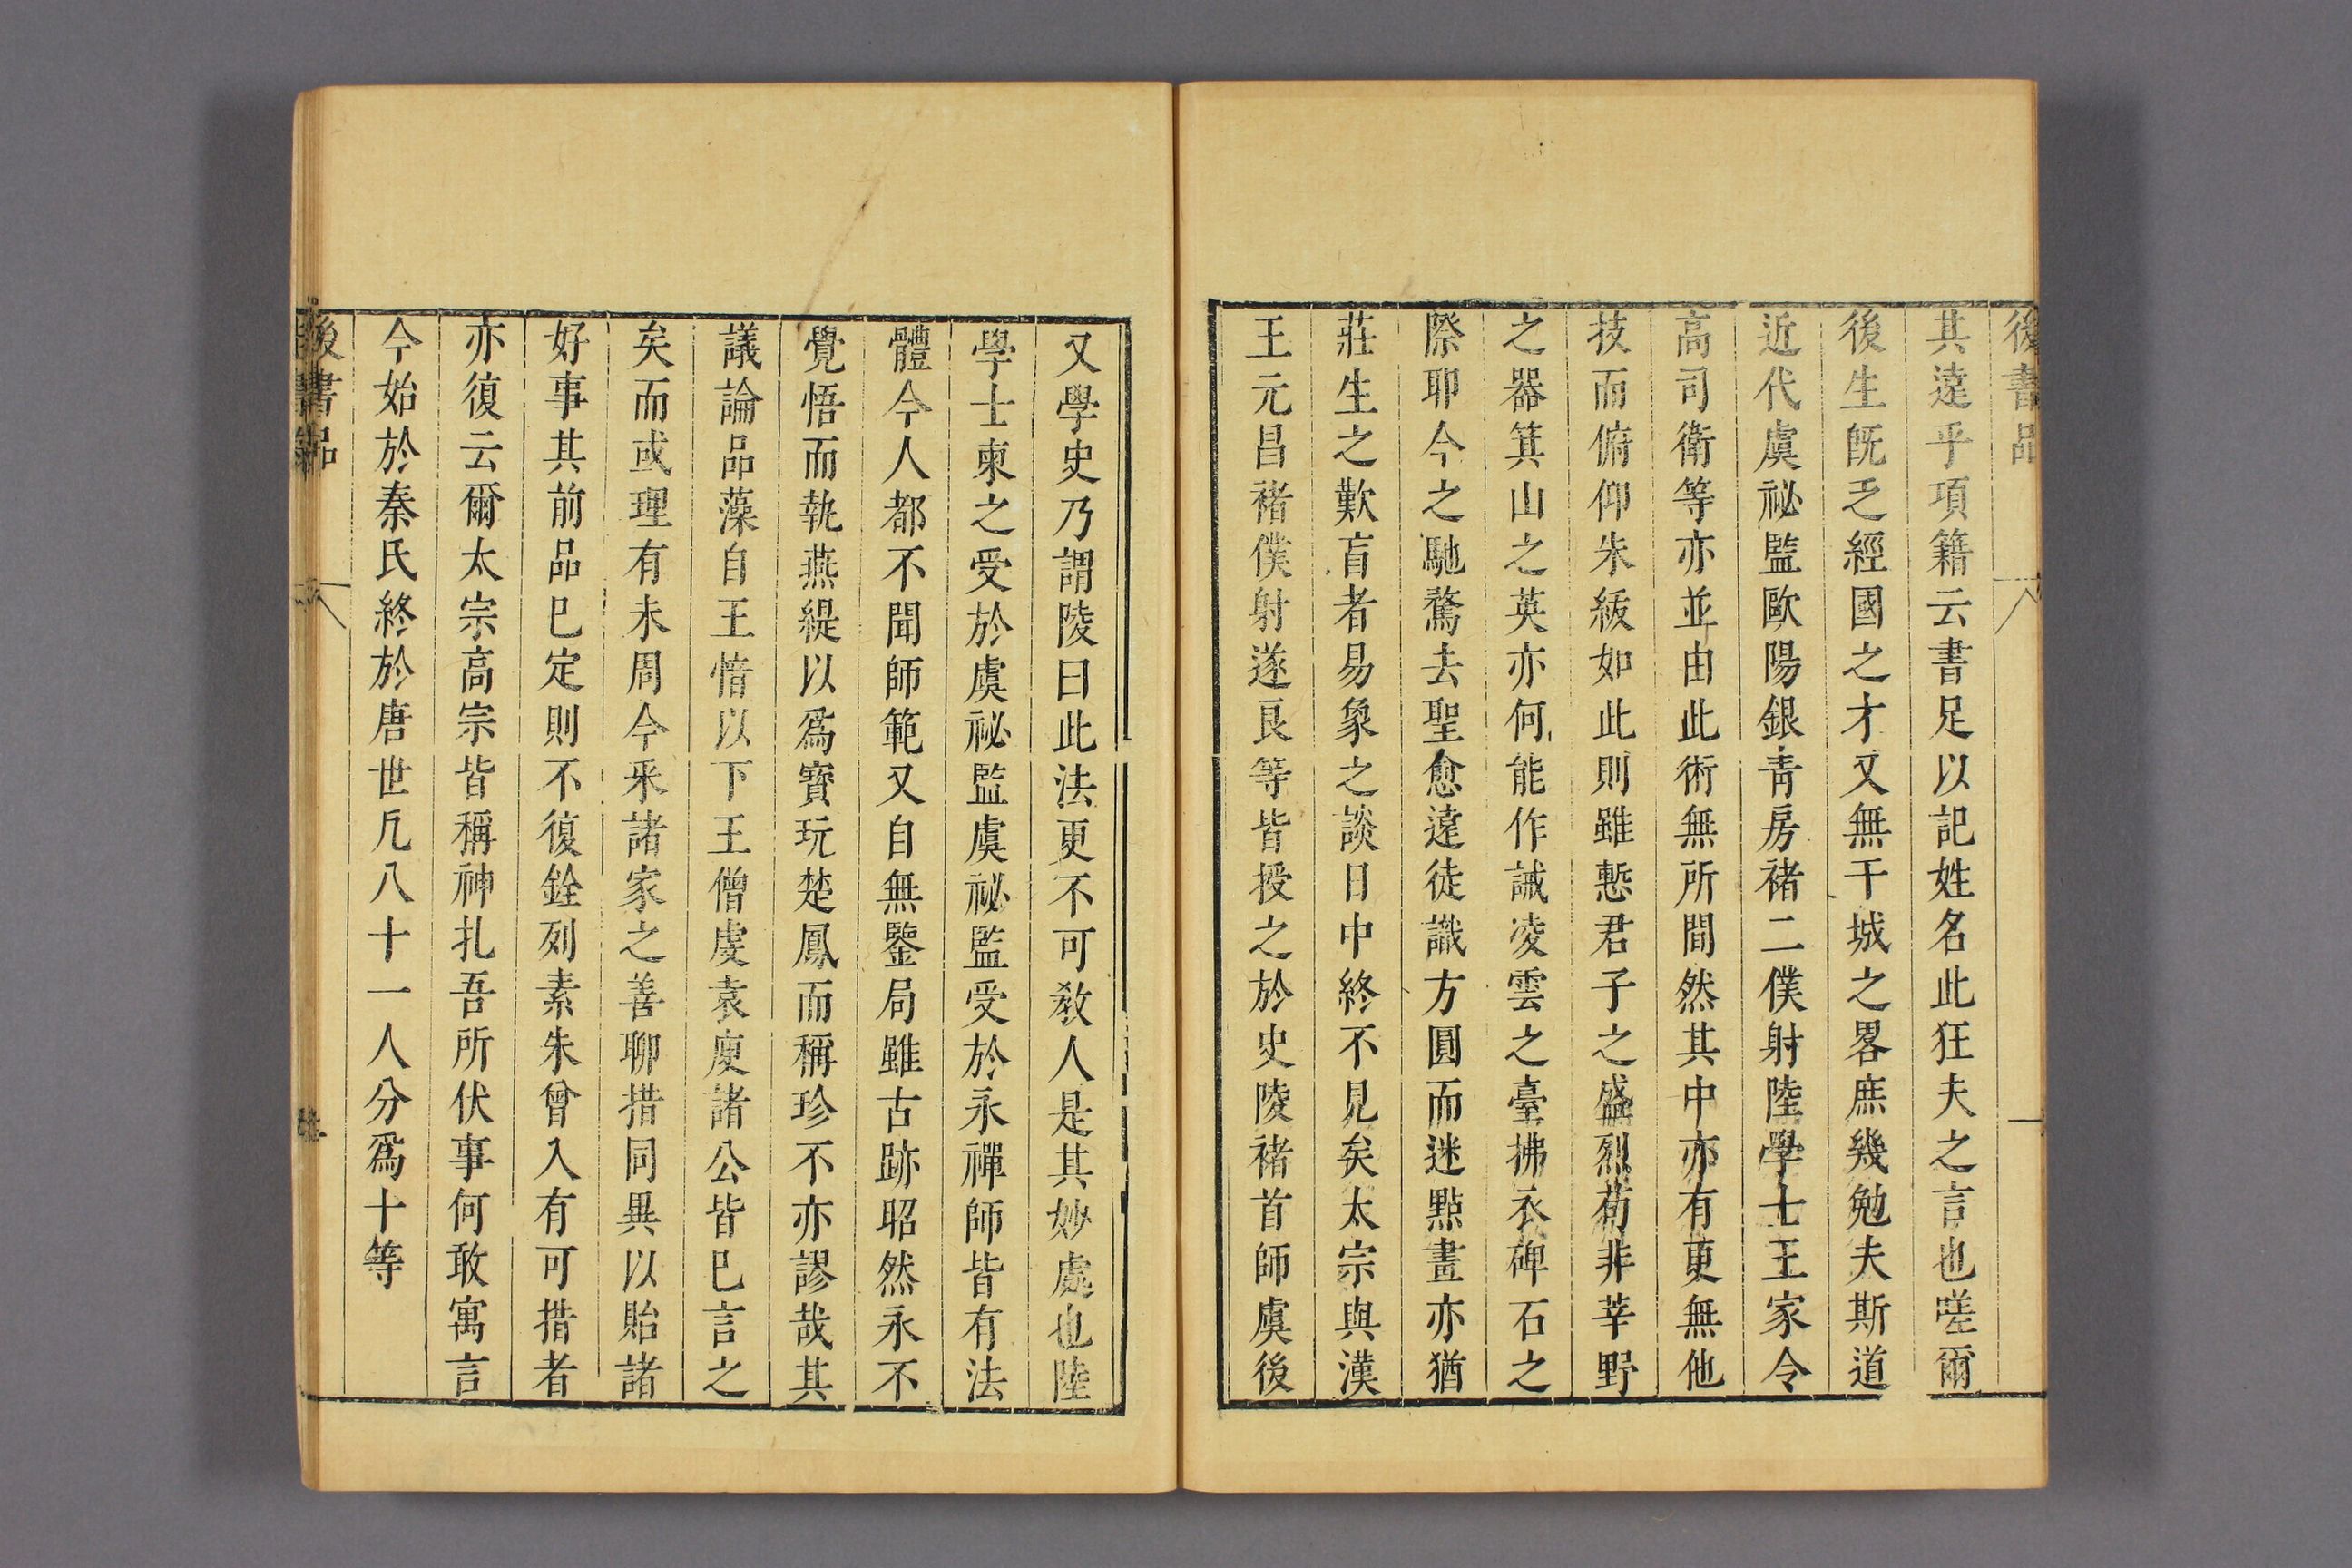 後書品
其逺乎項籍云書足以記姓名此狂夫之言也嗟爾
後生旣乏經國之才又無干城之畧庶幾勉夫斯道
近代虞祕監歐陽銀青房褚二僕射陸學士王家令
高司衛等亦並由此術無所間然其中亦有更無他
技而俯仰朱紱如此則雖慙君子之盛烈苟非莘野
之器箕山之英亦何能作誡凌雲之臺拂衣碑石之
際耶今之馳騖去聖愈遠徒識方圓而迷點畫亦猶
莊生之歎盲者易象之談日中終不見矣太宗與漢
王元昌褚僕射遂良等皆授之於史陵褚首師虞後
又學史乃謂陵曰此法更不可教人是其妙處也陸
學士柬之受於虞祕監虞祕監受於永禪師皆有法
體今人都不聞師範又自無鑒局雖古跡昭然永不
覺悟而執燕緹以爲寶玩楚鳳而稱珍不亦謬哉其
議論品藻自王愔以下王僧虔袁庾諸公皆已言之
矣而或理有未周今采諸家之善聊措同異以貽諸
好事其前品已定則不復銓列素未曾入有可措者
亦復云爾太宗高宗皆稱神札吾所伏事何敢寓言
今始於秦氏終於唐世凡八十一人分爲十等
後書品